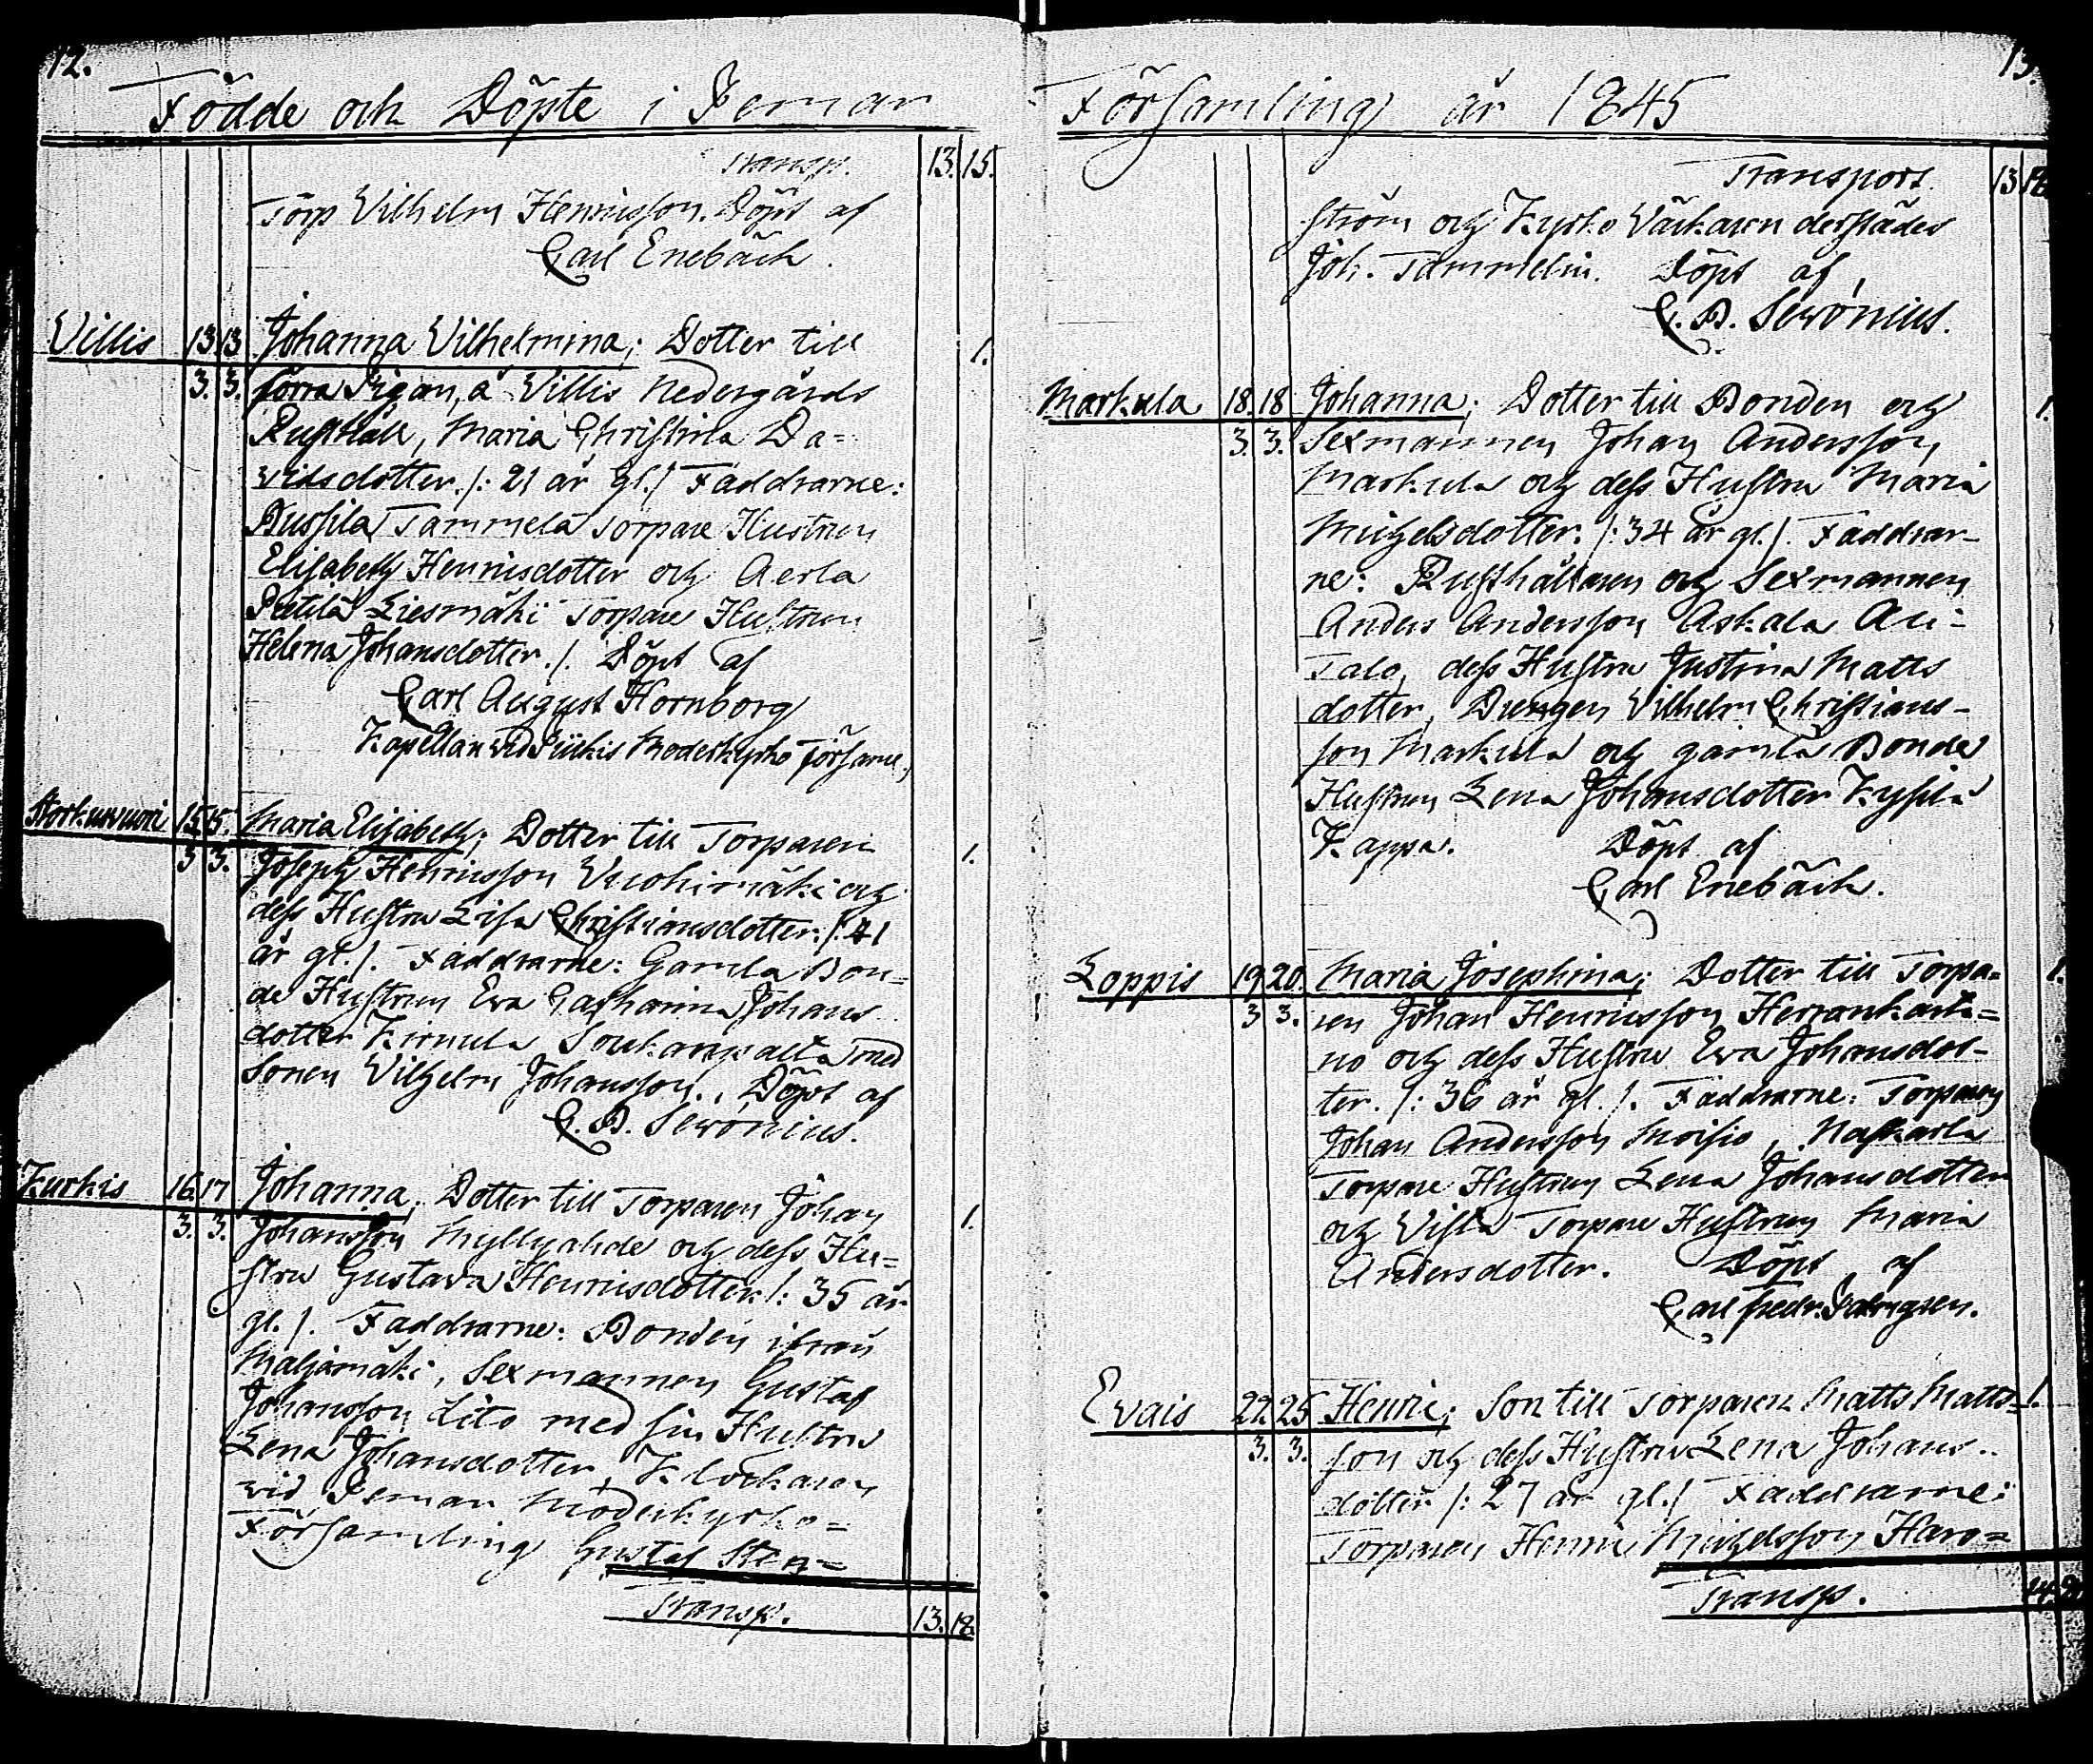 12.
Födde och Döpte i Pemar
Transp. 13. 15.
Torp Vilhelm Henricsson. Döpt af
Carl Enebäck.
Villis 13. 13. Johanna Vilhelmina; Dotter till 1.
3. 3. förra Pigan, å Villis Nedergårds
Rusthåll, Maria Christina Da=
vidsdotter. /: 21 år gl. / Faddrarne:
Tammela Torpare Hustrun
Elisabeth Henricsdotter och Aerla
Liesmäki Torpare Hustrun
Helena Johansdotter. /. Döpt af
Carl August Hornborg
Kapellan vid Piikis Moderkyrko Förs
15. 15. Maria Elisabeth; Dotter till Torparen 1.
3 3. Joseph Henricsson Vuohimäki och
dess Hustru Lisa Christiansdotter. /: 41
år gl. /. Faddrarne: Gamla Bon=
de Hustrun Eva Catharina Johans
dotter Kirnula med
Sonen Vilhelm Johansson. Döpt af
C. D. Serónius.
Kurkis 16. 17 Johanna; Dotter till Torparen Johan 1.
3. 3. Johansson Myllyahde och dess Hu=
stru Gustava Henricsdotter /: 35 år
gl. /. Faddrarne: Bonden ifrån
Maljamäki, Sexmannen Gustaf
Johansson dito med sin Hustru
Lena Johansdotter, Klockaren
vid Pemar Moderkyrko=
Församling Gustaf Sten=
Transp. 13. 18.
13.
Församling år 1845
Transport. 13 18
ström och Kyrko Väktaren derstädes
Joh. Tammelin. Döpt af
C. D. Serónius.
Markula 18. 18 Johanna; Dotter till Bonden och 1.
3. 3. Sexmannen Johan Andersson
Markula och dess Hustru Maria
Michelsdotter. /: 34 år gl. /. Faddrar-
ne: Rusthållaren och Sexmannen
Anders Andersson Askala Ali-
Talo, dess Hustru Justina Matts
dotter, Drengen Vilhelm Christians-
son Markula och gamla Bonde
Hustrun Lena Johansdotter
Kappa. Döpt af
Carl Enebäck.
Loppis 19. 20. Maria Josephina; Dotter till Torpa= 1.
3 3. ren Johan Henricsson Herrankarta=
no och dess Hustru Eva Johansdot-
ter. /: 36 år gl. /. Faddrarne: Torparen
Johan Andersson Moisio, Naskarla
Torpare Hustrun Lena Johansdotter
och Vista Torpare Hustrun Maria
Andersdotter. Döpt af
Carl Fredr.
Evais 22. 25 Henric; Son till Torparen Matts Matts= 1.
3. 3. son och dess Hustru Lena Johans-
dotter /: 27 år gl. / Faddrarne:
Torparen Henric Michelsson Haro=
Transp.